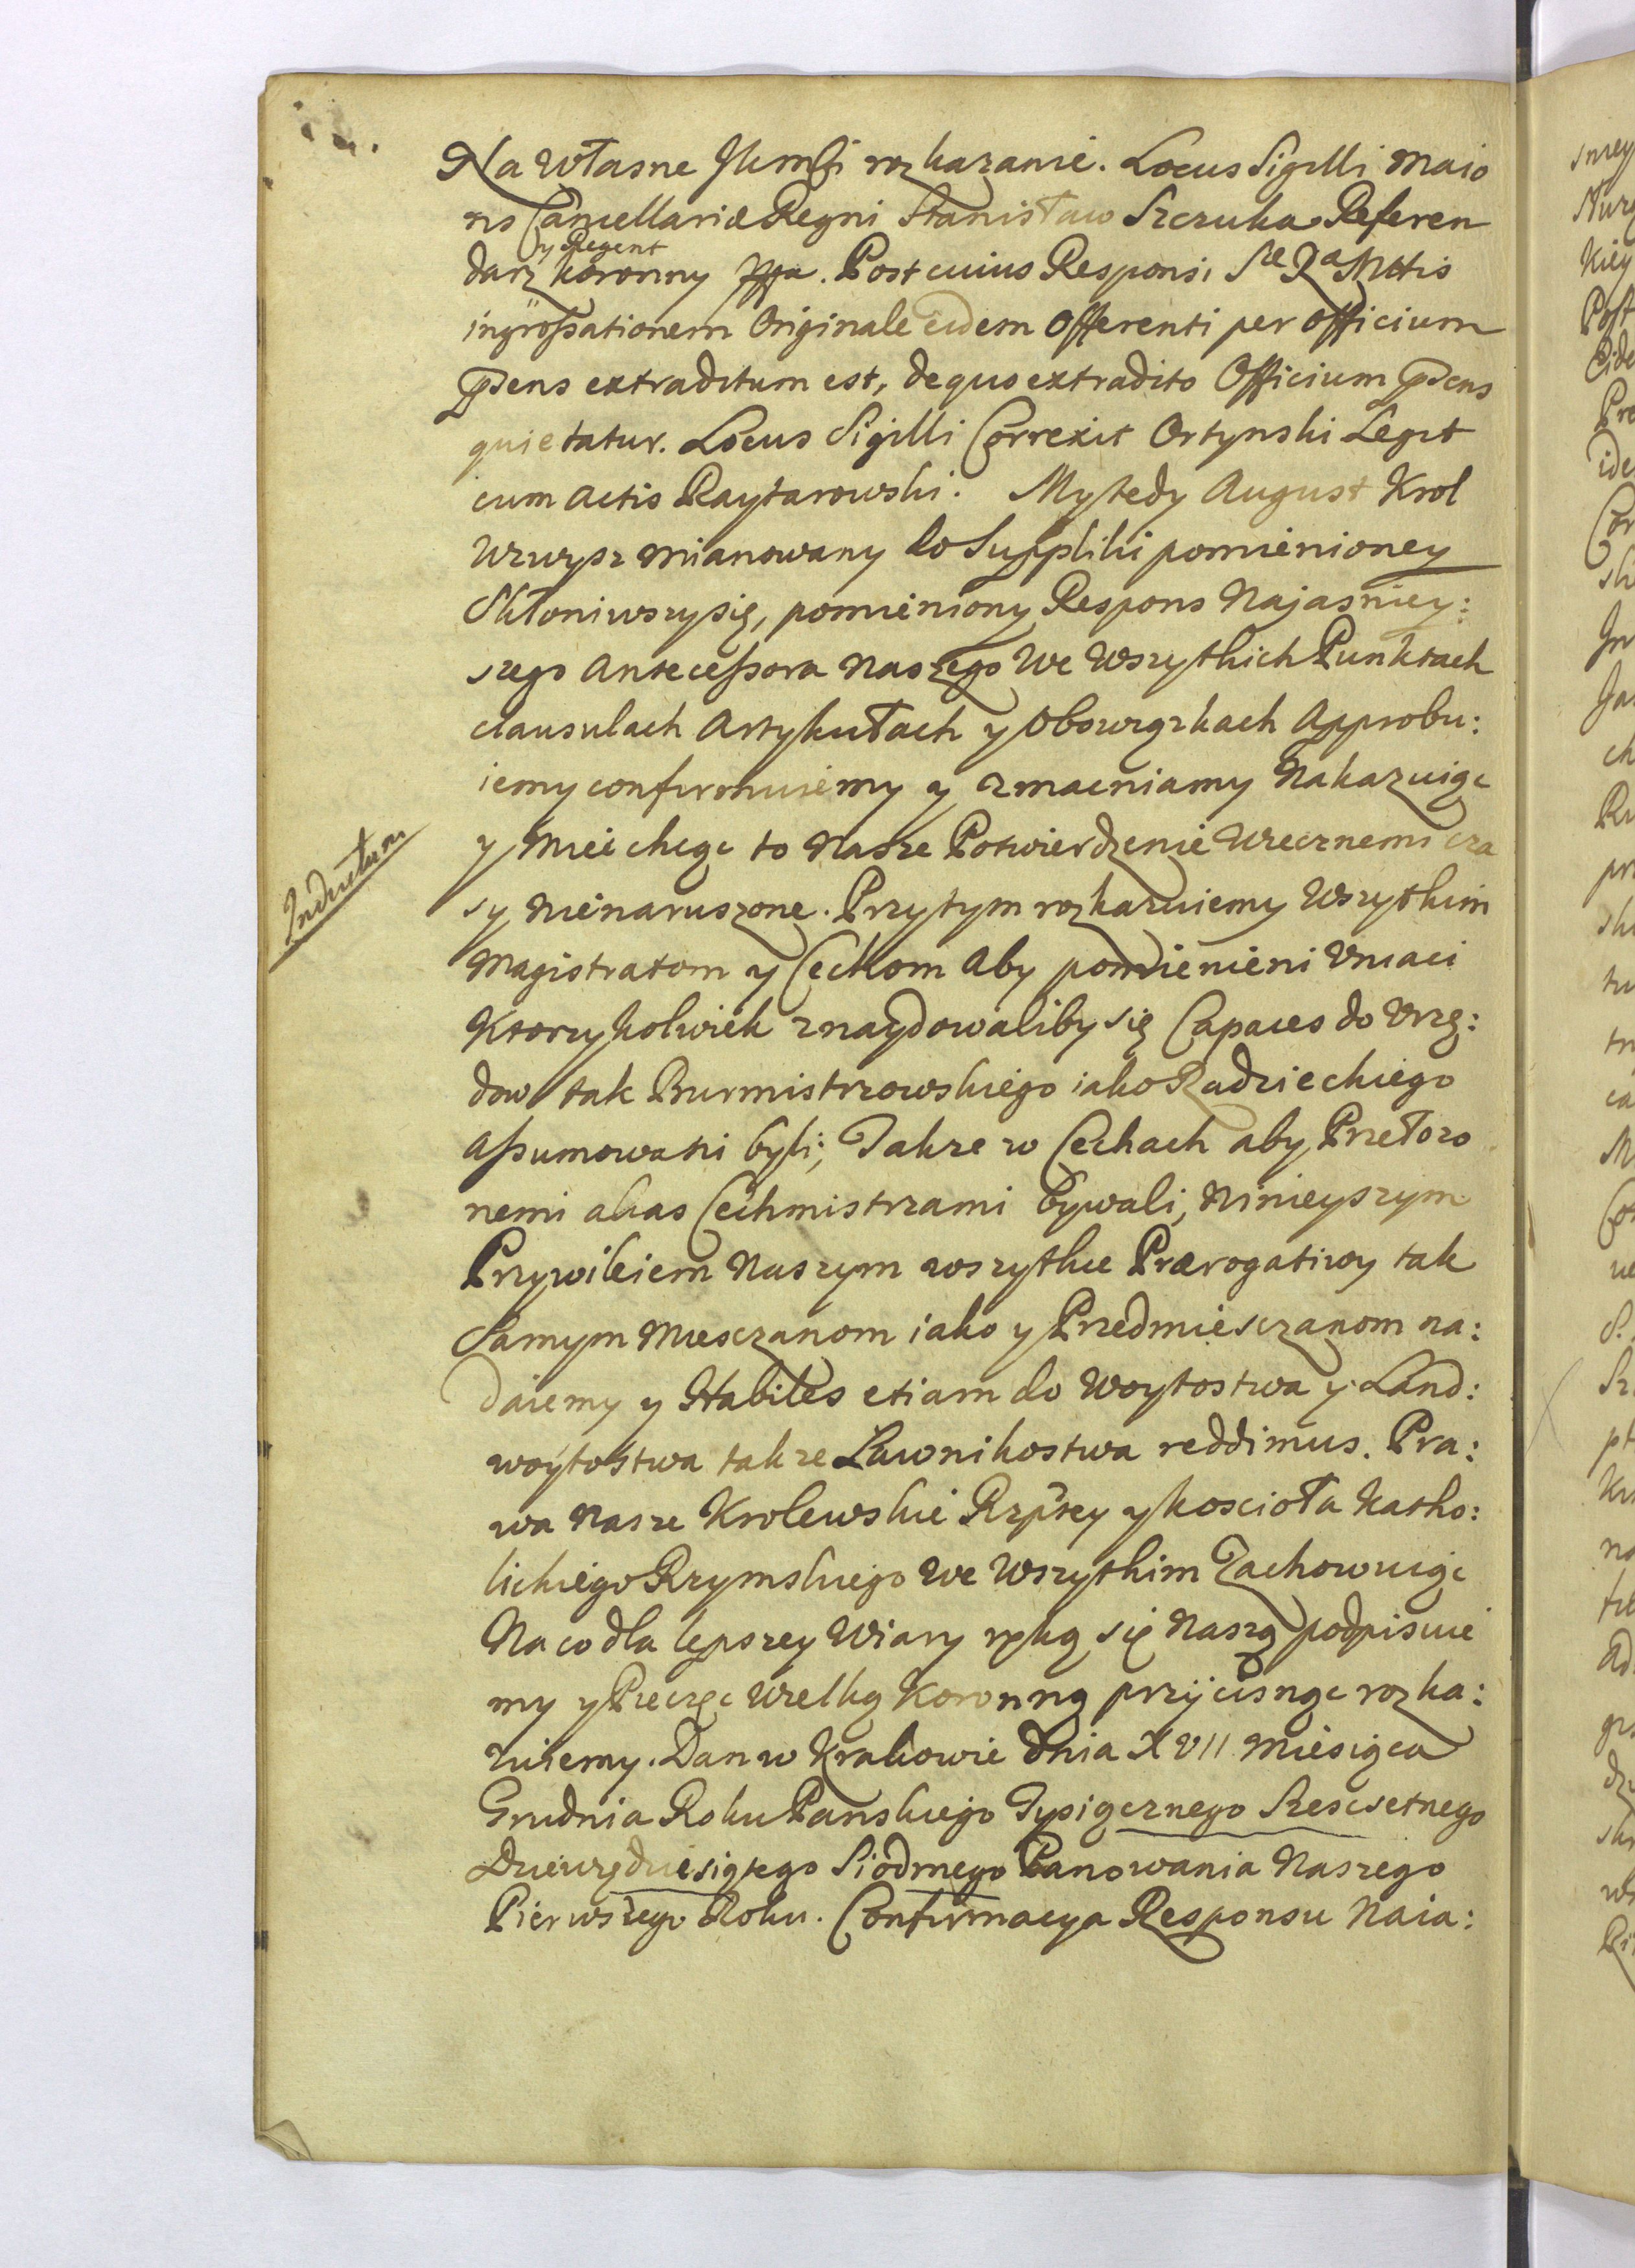 Na własne JKmsci rozkazanie. Locus Sigilli Maio
ris Cancellariæ Regni Stanisław Szczuka Referen
y Regent
darz koronny mpa. Post cuius Responsi Sæ Ræ Mttis
ingrossationem Originale eidem Offerenti per Officium
pñsens extraditum est, de quo extradito Officium pñsens
quietatur. Locus Sigilli Correxit Ortynski Legit
cum Actis Raytarowski. My tedy August Krol
wzwysz mianowany do Suppliki pomienioney
Skłoniwszy się, pomieniony Respons Najasniey:
szego Antecessora Naszego We Wszytkich Punktach
clausulach Artykułach y Obowiązkach Approbu:
iemy confirmuiemy y zmacniamy Nakazuiąc
y Mieć chcąc to Nasze Potwierdzenie wiecznemi cza
sy nienaruszone. Przytym rozkazuiemy Wszytkim
Indultum
Magistratom y Cechom Aby pomienieni Uniaci
Ktorzykolwiek znaydowaliby się Capaces do Urzę:
dow tak Burmistrzowskiego iako Radzieckiego
Assumowani byli; Takze w Cechach aby Przełozo
nemi alias Cechmistrzami bywali, Ninieyszym
Przywileiem Naszym wszytkie Prærogatiwy tak
Samym Miesczanom iako y Przedmiesczanom na:
daiemy y Habiles etiam do Woytostwa y Land:
woytostwa takze Ławnikostwa reddimus. Pra:
wa Nasze Krolewskie Rzptey y koscioła Katho:
lickiego Rzymskiego We Wszytkim Zachowuiąc
Na co dla lepszey Wiary ręką się Naszą podpisuie
my y Pieczęc Wielką Koronną przycisnąc rozka:
zuiemy. Dan w Krakowie dnia XVII Miesiąca
Grudnia Roku Panskiego Tysiącznego Szescsetnego
Dziewiędziesiątego Siodmego Panowania Naszego
Pierwszego Roku. Confirmacya Responsu Naia: